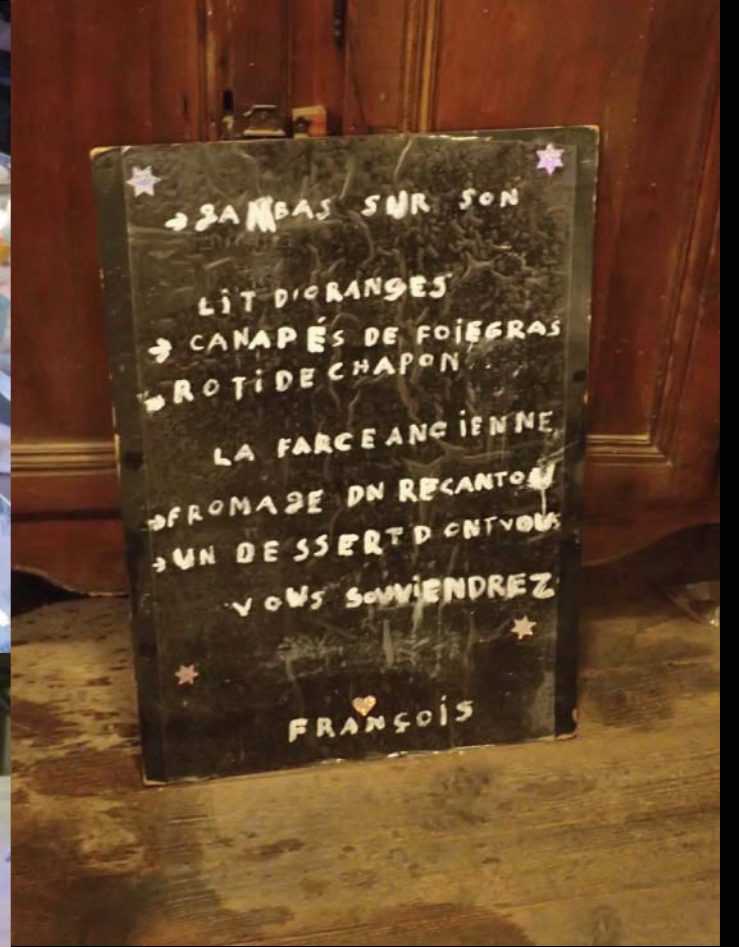 → GAMBAS SUR SON
LIT D'ORANGES
→ CANAPÉS DE FOIEGRAS
→ ROTI DE CHAPON
LA FARCE ANCIENNE
→ FROMAGE DN RECANTOU
→ UN DESSERT DONT VOUS
VOUS SOUVIENDREZ
FRANÇOIS